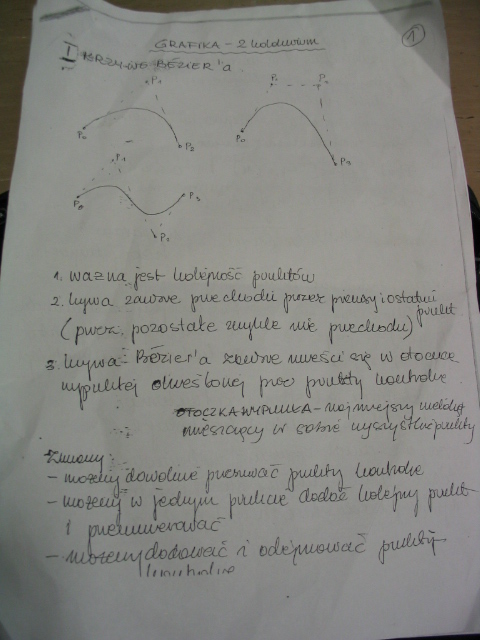 GRAFIKA - 2 kolokwium
1
I KRZYWE BÉZIER'a
P1
P0
P2
P1
P2
P0
P3
P1
P0
P3
P2
1. ważna jest kolejność punktów
2. krzywa zawsze przechodzi przez pierwszy i ostatni punkt
(przez pozostałe zwykle nie przechodzi)
3. krzywa Bézier'a zawsze mieści się w otoczce
wypukłej określonej przez punkty kontrolne
OTOCZKA WYPUKŁA - najmniejszy wielokąt
mieszczący w sobie wszystkie punkty
Zmiany:
- możemy dowolnie przesuwać punkty kontrolne
- możemy w jednym punkcie dodać kolejny punkt
i przenumerować
- możemy dodawać i odejmować punkty
kontrolne